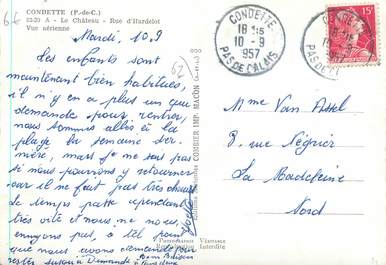 CONDETTE (P.-de-C.)
53-20 A - Le Château - Rue d'Hardelot
Vue aérienne
Mardi, 10.9
Les enfants sont
maintenant bien habitués,
il n'y en a plus un qui
demande pour rentrer,
nous sommes allés à la
plage la semaine der-
nière, mais je ne sais pas
si nous pourrons y retourner
car il ne fait pas très chaud
le temps passe cependant
très vite et nous ne nous
ennuyons pas, à tel point
que nous avons demandé pour
rester jusqu'à Dimanche
62
COMBIER IMP. MACON
CONDETTE
18 15
10-9
1957
PAS DE CALAIS
CONDETTE
15F
Mme Van Assel
8 rue Négrier
La Madeleine
Nord
Interdite